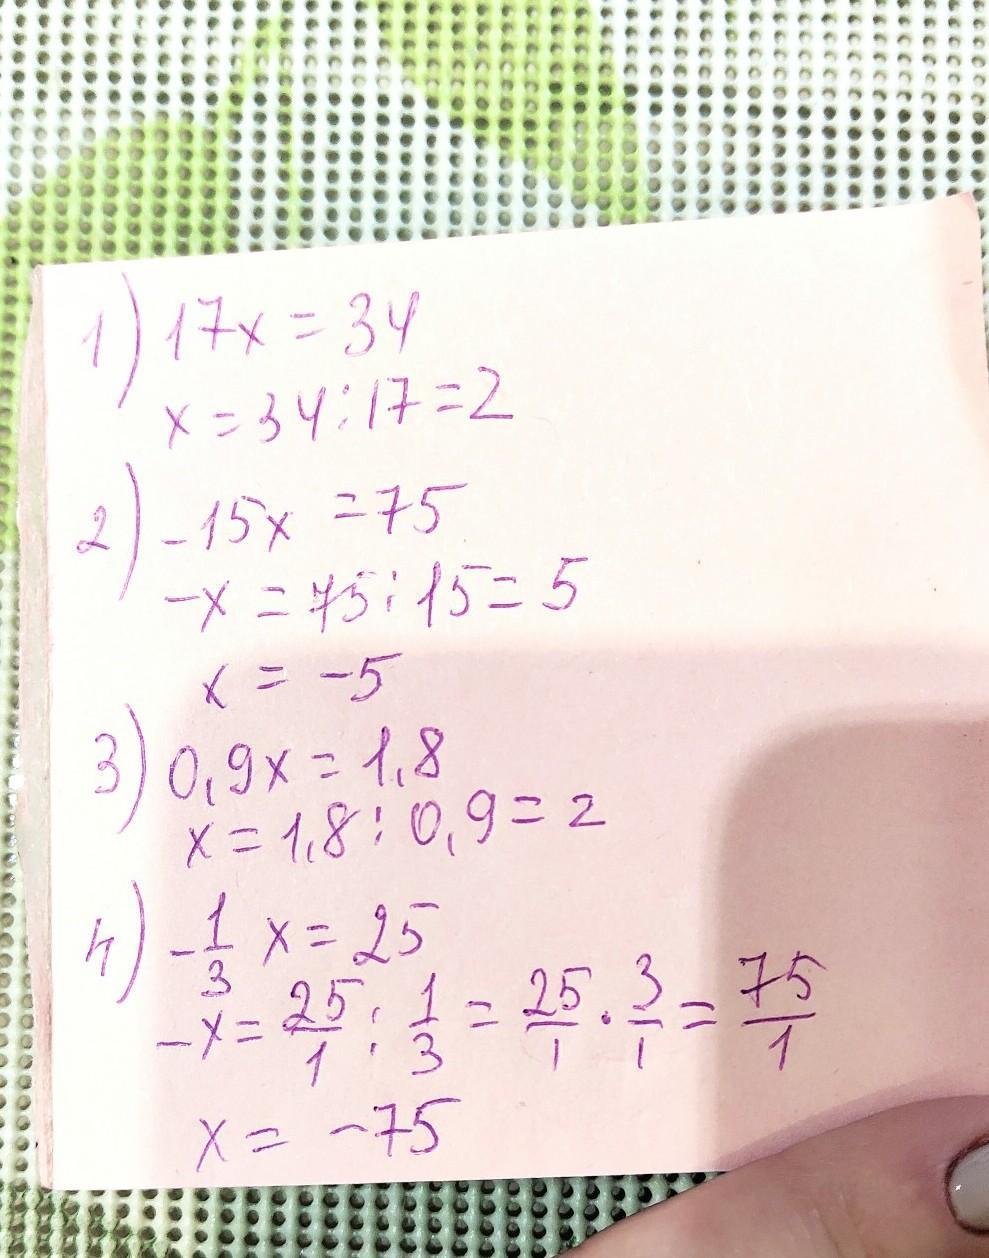 1) 17x = 34
x = 34 : 17 = 2
2) -15x = 75
-x = 75 : 15 = 5
x = -5
3) 0,9x = 1,8
x = 1,8 : 0,9 = 2
4) -1/3 x = 25
-x = 25/1 : 1/3 = 25/1 · 3/1 = 75/1
x = -75